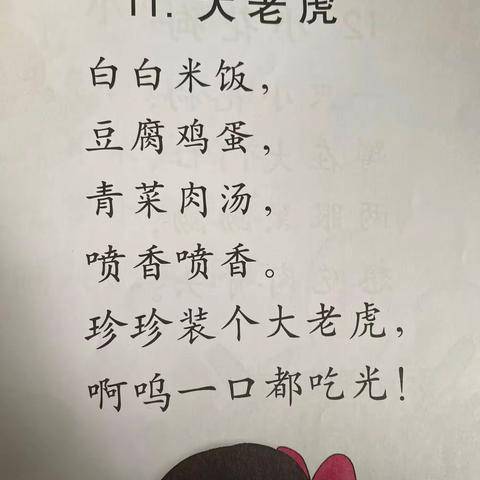 11. 大老虎
白白米饭，
豆腐鸡蛋，
青菜肉汤，
喷香喷香。
珍珍装个大老虎，
啊呜一口都吃光！